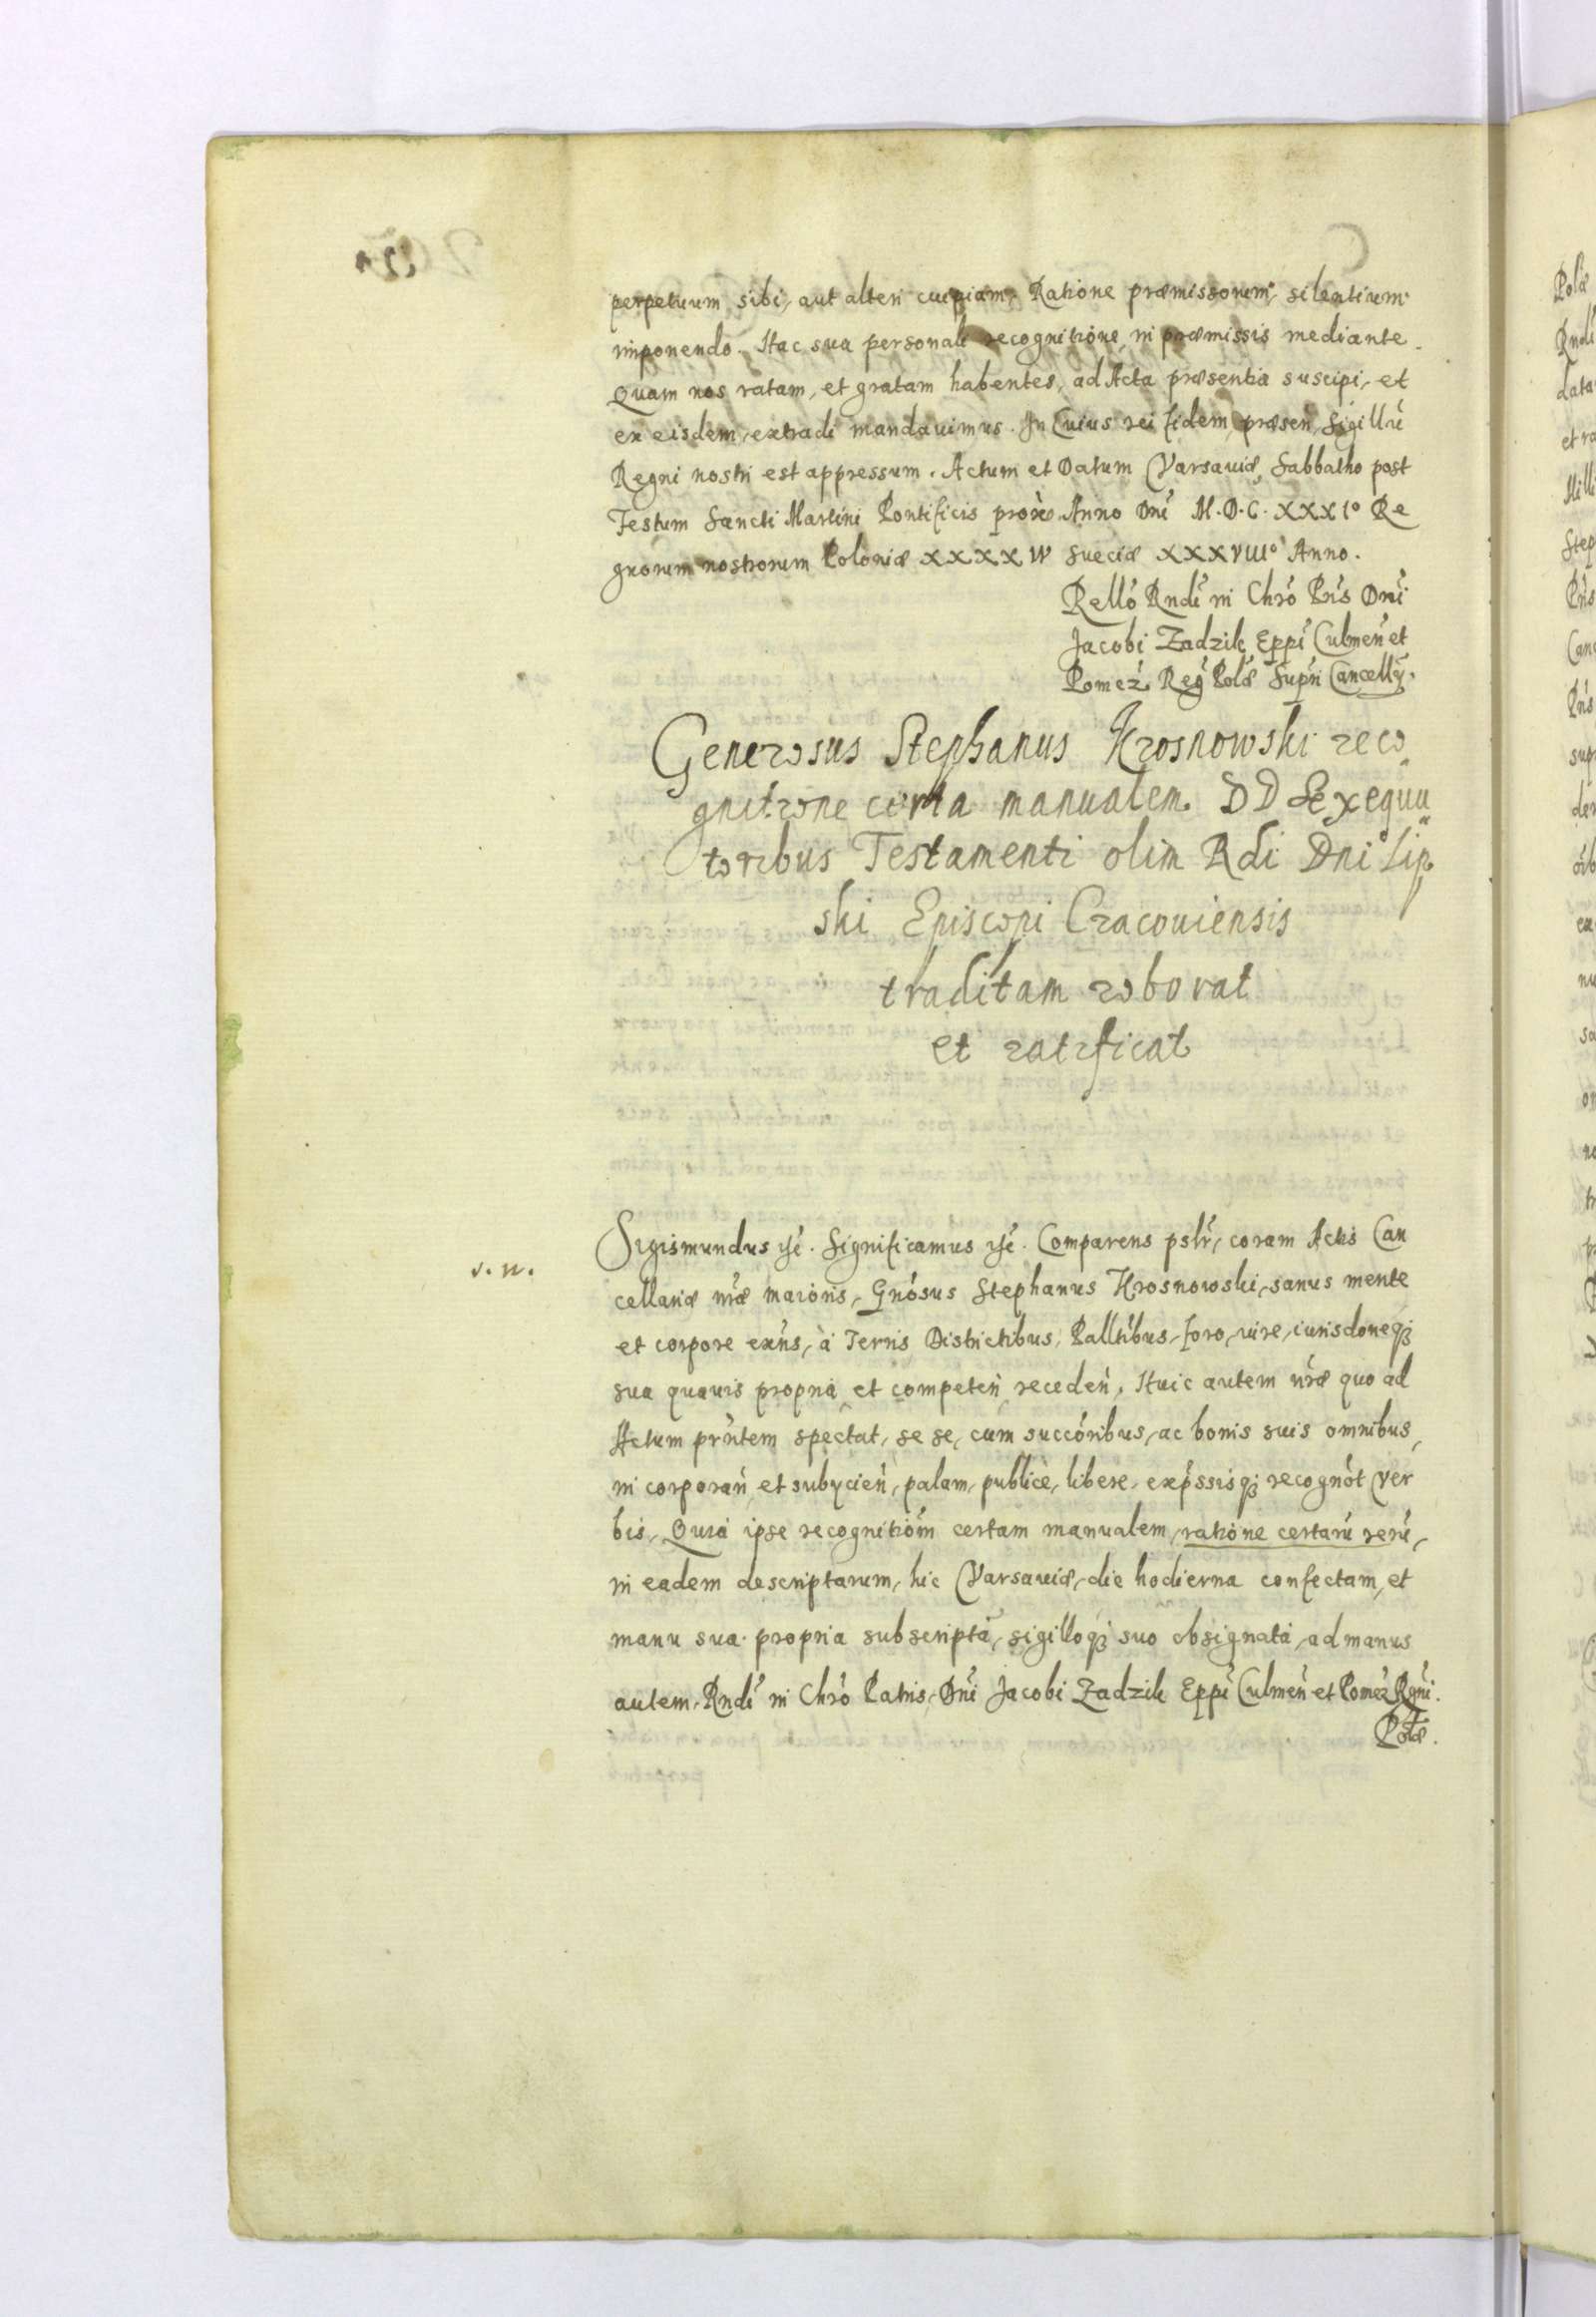 perpetuum sibi, aut alteri cuipiam, Ratione præmissorum, silentium
imponendo. Hac sua personali recognitione, in præmissis mediante.
Quam nos ratam, et gratam habentes, ad Acta præsentia suscipi, et
ex eisdem, extradi mandauimus. In Cuius rei fidem, præsen̄ Sigillū
Regni nostri est appressum. Actum et Datum Varsauiæ, Sabbatho post
Festum Sancti Martini Pontificis proxē. Anno Dnī M.D.C.XXXI° Re
gnorum nostrorum Poloniæ XXXXIV Sueciæ XXXVIII° Anno.
Rellō Rndī in Chrō Prīs Dnī
Jacobi Zadzik Eppī Culmen̄ et
Pomez̄. Reḡ Polæ Supr̄i Cancellīj.
Generosus Stephanus Krosnowski reco
gnitione certa manualem DD Exequu
toribus Testamenti olim Rdi Dni Lip
ski Episcopi Cracouiensis
traditam roborat
et ratificat
Sigismundus ꝛc̄. Significamus ꝛc̄. Comparens pslr̄, coram Actis Can
s. n.
cellariæ nr̄æ maioris, Gnōsus Stephanus Krosnowski, sanus mente
et corpore exn̄s, à Terris Districtibus, Palltībus, foro, iure, iurisdoneq꜎
sua quauis propria et competen̄ receden̄, Huic autem nr̄æ quo ad
Actum prn̄tem spectat, se se, cum succōribus, ac bonis suis omnibus,
in corporan̄, et subijcien̄, palam, publicè, libere, expr̄ssisq꜎ recognōt ver
bis, Quia ipse recognitiōm certam manualem, ratione certarū rerū,
in eadem descriptarum, hic Varsauiæ, die hodierna confectam, et
manu sua propria subscriptā, sigilloq꜎ suo obsignatā, ad manus
autem, Rndī in Chrō Patris, Dnī Jacobi Zadzik Eppī Culmen̄ et Pomez̄ Rgnī.
Polæ.